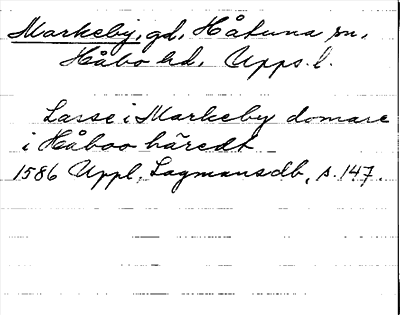 Markeby, gd, Håtuna sn,
Håbo hd, Upps. l.
Lasse i Markeby domare
i Håboo häredt
1586 Uppl. Lagmansdb, s. 147.